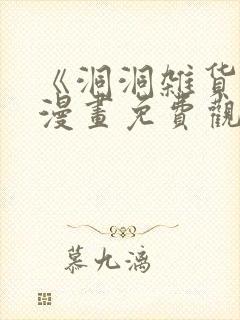 《洞洞雑货
漫畫免費觀
慕九漓